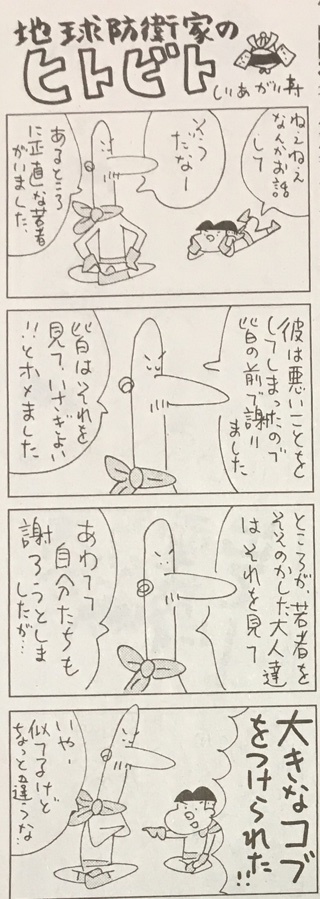 地球防衛家の
ヒトビト
しりあがり寿
ねえねえ
なんかお話
して
そう
だなー
あるところ
に正直な若者
がいました
彼は悪いことを
してしまったので
皆の前で謝り
ました
皆はそれを
見て、いさぎよい
!!とホメました
ところが、若者を
そそのかした大人達
はそれを見て
あわてて
自分たちも
謝ろうとしま
したが…
大きなコブ
をつけられた!!
いやー
似てるけど
ちょっと違うな